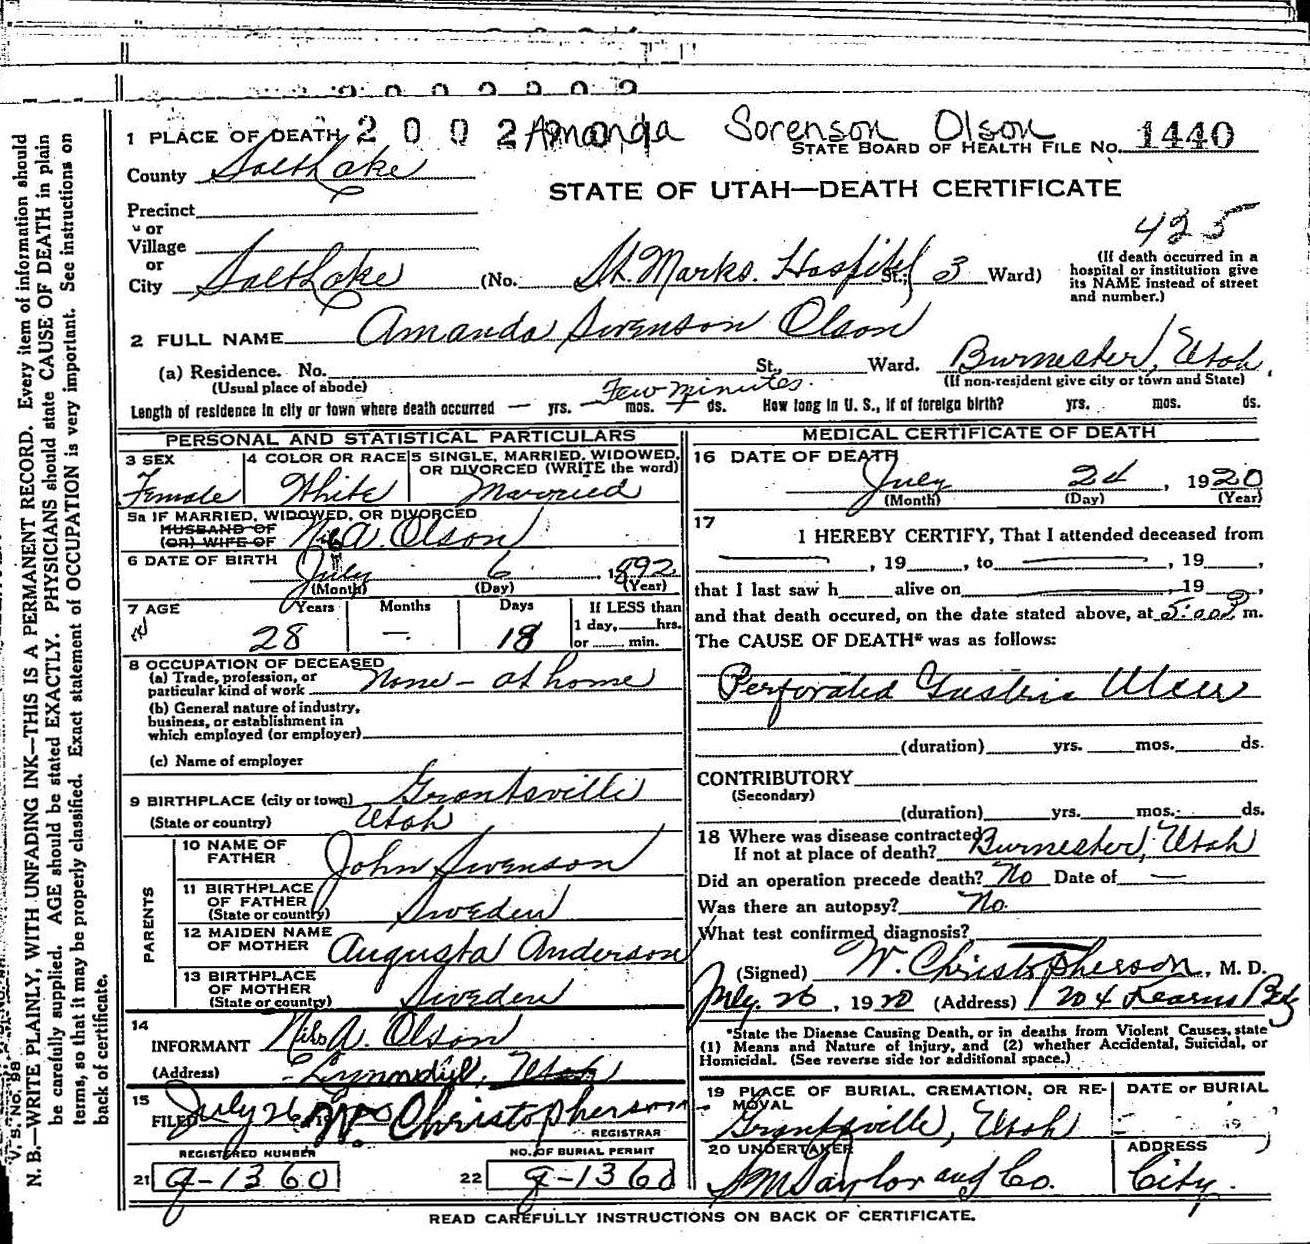 2 0 0 2 Amanda Sorenson Olson
1 PLACE OF DEATH
STATE BOARD OF HEALTH FILE NO. 1440
County Salt Lake
STATE OF UTAH—DEATH CERTIFICATE
Precinct
or
Village
425
or
City Salt Lake (No. St. Marks. Hospital St.; 3 Ward)
(If death occurred in a
hospital or institution give
its NAME instead of street
and number.)
2 FULL NAME Amanda Swenson Olson
(a) Residence. No. St., Ward. Burmester, Utah
(Usual place of abode) (If non-resident give city or town and State)
Few minutes.
Length of residence in city or town where death occurred — yrs. — mos. ds. How long in U. S., if of foreign birth? yrs. mos. ds.
PERSONAL AND STATISTICAL PARTICULARS
3 SEX
Female
4 COLOR OR RACE
White
5 SINGLE, MARRIED, WIDOWED,
OR DIVORCED (WRITE the word)
Married
5a IF MARRIED, WIDOWED, OR DIVORCED
HUSBAND OF
(OR) WIFE OF A. Olson
6 DATE OF BIRTH
July 6, 1892
(Month) (Day) (Year)
7 AGE Years Months Days If LESS than
1 day, hrs.
28 — 18 or min.
8 OCCUPATION OF DECEASED
(a) Trade, profession, or
particular kind of work None - at home
(b) General nature of industry,
business, or establishment in
which employed (or employer)
(c) Name of employer
9 BIRTHPLACE (city or town) Grantsville
(State or country) Utah
PARENTS
10 NAME OF
FATHER John Swenson
11 BIRTHPLACE
OF FATHER
(State or country) Sweden
12 MAIDEN NAME
OF MOTHER Augusta Anderson
13 BIRTHPLACE
OF MOTHER
(State or country) Sweden
14
INFORMANT Nils A. Olson
(Address) Lynndyl, Utah
15
FILED July 26 W. Christopherson
REGISTRAR
REGISTERED NUMBER
21 g-1360
NO. OF BURIAL PERMIT
22 g-1360
MEDICAL CERTIFICATE OF DEATH
16 DATE OF DEATH
July 24, 1920
(Month) (Day) (Year)
17
I HEREBY CERTIFY, That I attended deceased from
, 19 , to , 19 ,
that I last saw h alive on , 19 ,
and that death occured, on the date stated above, at 5:00 P m.
The CAUSE OF DEATH* was as follows:
Perforated Gastric Ulcer
(duration) yrs. mos. ds.
CONTRIBUTORY
(Secondary)
(duration) yrs. mos. ds.
18 Where was disease contracted
If not at place of death? Burmester, Utah
Did an operation precede death? No Date of —
Was there an autopsy? No.
What test confirmed diagnosis?
(Signed) W. Christopherson, M. D.
July 26, 1920 (Address) 1204 Kearns Bldg
*State the Disease Causing Death, or in deaths from Violent Causes, state
(1) Means and Nature of Injury, and (2) whether Accidental, Suicidal, or
Homicidal. (See reverse side for additional space.)
19 PLACE OF BURIAL, CREMATION, OR RE-
MOVAL
Grantsville, Utah
DATE OF BURIAL
19
20 UNDERTAKER
S M Taylor and Co.
ADDRESS
City.
READ CAREFULLY INSTRUCTIONS ON BACK OF CERTIFICATE.
V. S. No. 98
N. B.—WRITE PLAINLY, WITH UNFADING INK—THIS IS A PERMANENT RECORD. Every item of information should
be carefully supplied. AGE should be stated EXACTLY. PHYSICIANS should state CAUSE OF DEATH in plain
terms, so that it may be properly classified. Exact statement of OCCUPATION is very important. See instructions on
back of certificate.